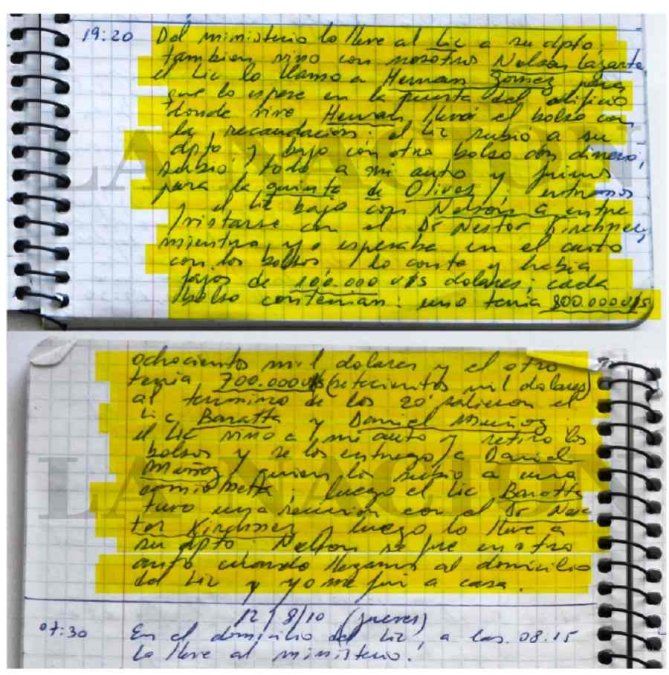 19:20 Del ministerio lo lleve al Lic a su dpto,
tambien vino con nosotros Nelson Lazarte
el Lic lo llamo a Hernan Gomez para
que lo espere en la puerta del edificio
donde vive Hernan, llevó el bolso con
la recaudacion. el Lic subio a su
dpto y bajo con otro bolso con dinero,
subio todo a mi auto y fuimos
para la quinta de Olivos, entramos
y el Lic bajo con Nelson a entre
vistarse con el Dr Nestor Kirchner,
mientras yo esperaba en el auto
con los bolsos, lo conte y habia
fajos de 100.000 U$S dolares, cada
bolso contenian: uno tenia 800.000U$S
ochocientos mil dolares y el otro
tenia 700.000U$S (setecientos mil dolares)
al termino de los 20' salieron el
Lic Baratta y Daniel Muñoz
el Lic vino a mi auto y retiro los
bolsos y se los entrego a Daniel
Muñoz quien los subio a una
camioneta, luego el Lic Baratta
tuvo una reunion con el Dr Nes
tor Kirchner y luego lo lleve a
su dpto. Nelson se fue en otro
auto cuando llegamos al domicilio
del Lic y yo me fui a casa.
12/8/10 (jueves)
07:30 En el domicilio del Lic, a las 08.15
lo lleve al ministerio.
LA NACION
LA NACION